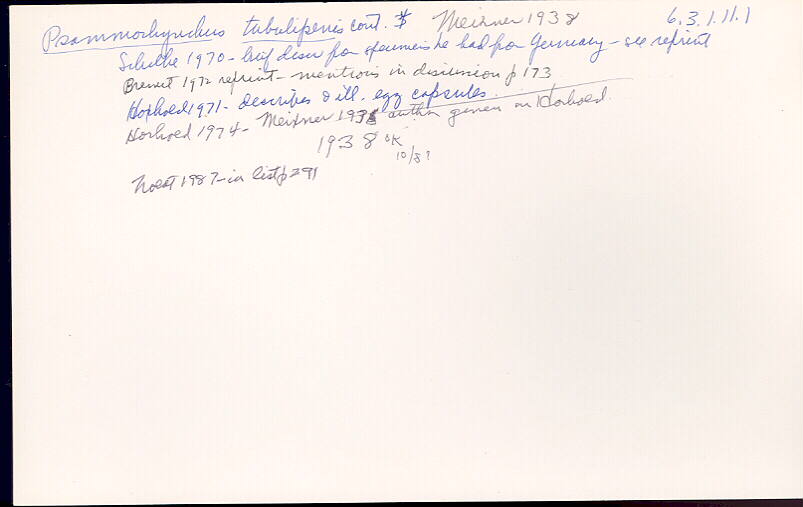 Psammorhynchus tubulipenis cont. $ Meixner 1938 6.3.1.11.1
Schilke 1970 - brief descr from specimens he had from Germany - see reprint
Brewet 1972 reprint - mentions in discussion p 173
Hoxhoed 1971 - describes & ill. egg capsules.
Hoxhoed 1974 - Meixner 1938 author given in Hoxhoed.
1938 OK
10/8?
1987 - in list p 291